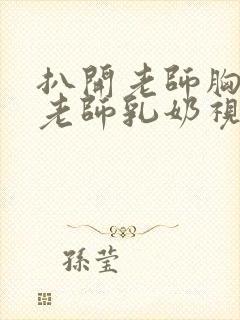 扒開老師胸
老師乳奶視
孫莹